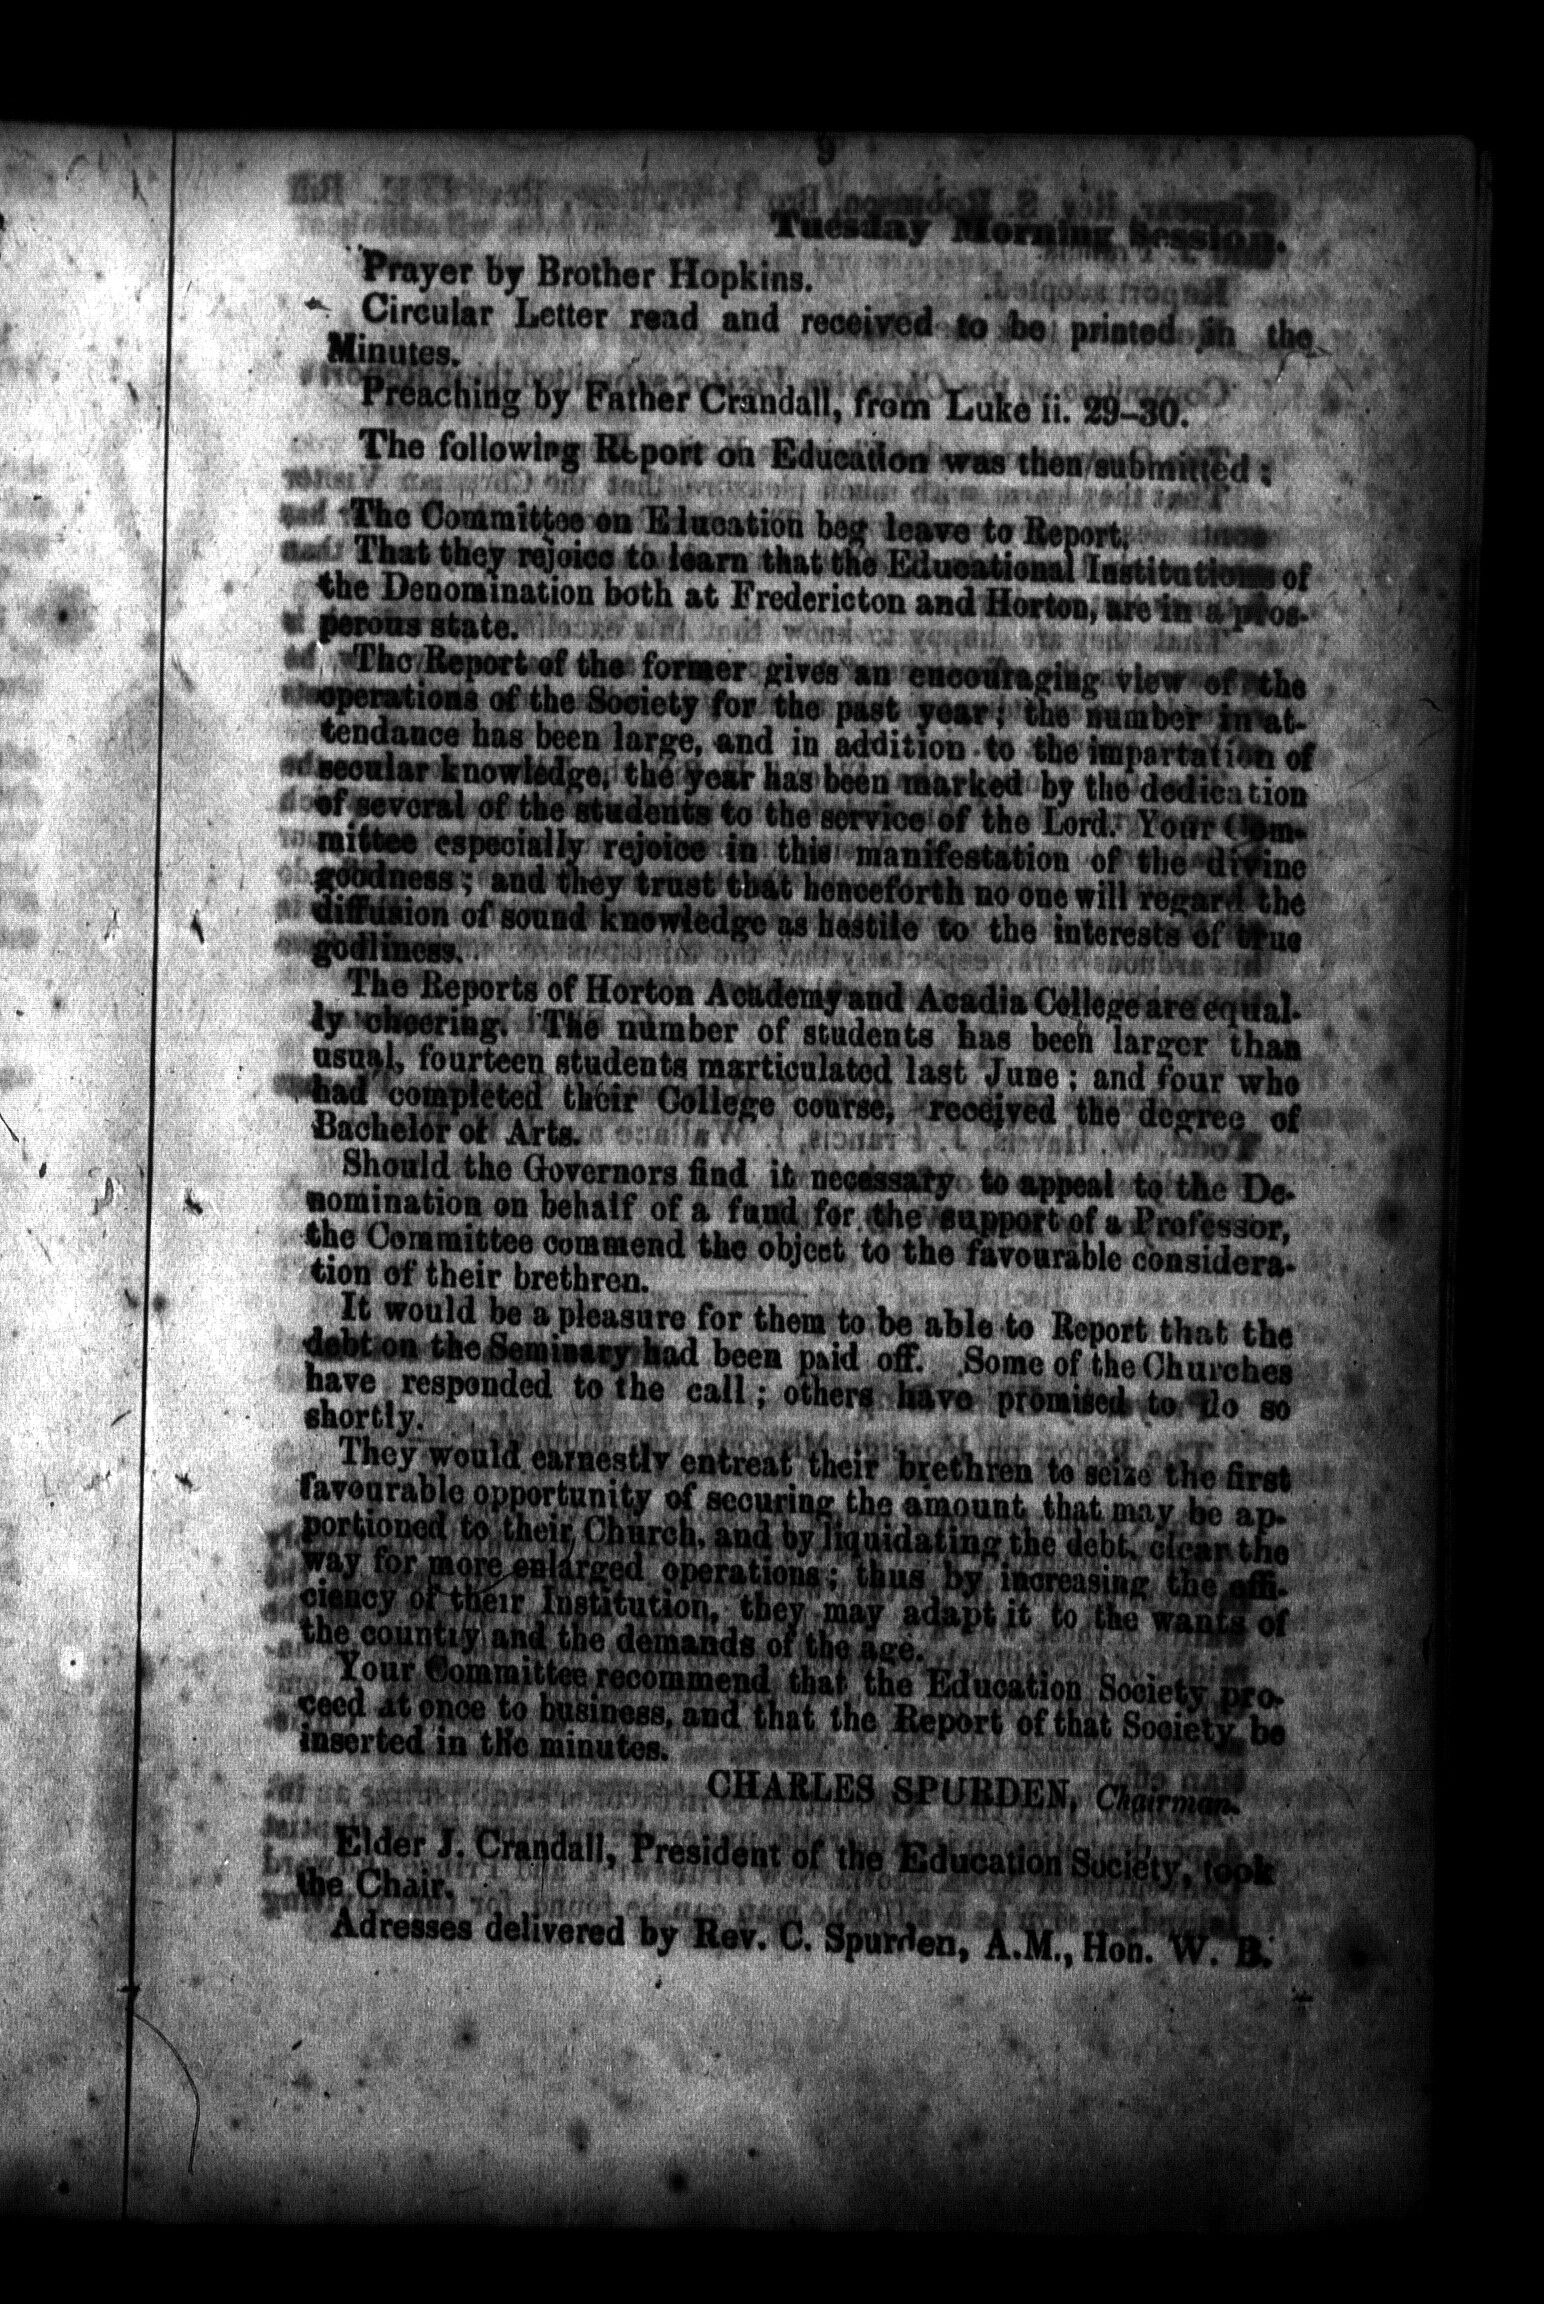 9
Tuesday Morning Session.
Prayer by Brother Hopkins.
Circular Letter read and received to be printed in the
Minutes.
Preaching by Father Crandall, from Luke ii. 29–30.
The following Report on Education was then submitted :
The Committee on Education beg leave to Report,
That they rejoice to learn that the Educational Institutions of
the Denomination both at Fredericton and Horton, are in a pros-
perous state.
The Report of the former gives an encouraging view of the
operations of the Society for the past year ; the number in at-
tendance has been large, and in addition to the impartation of
secular knowledge, the year has been marked by the dedication
of several of the students to the service of the Lord. Your Com-
mittee especially rejoice in this manifestation of the divine
goodness ; and they trust that henceforth no one will regard the
diffusion of sound knowledge as hostile to the interests of true
godliness.
The Reports of Horton Academy and Acadia College are equal-
ly cheering. The number of students has been larger than
usual, fourteen students marticulated last June ; and four who
had completed their College course, received the degree of
Bachelor of Arts.
Should the Governors find it necessary to appeal to the De-
nomination on behalf of a fund for the support of a Professor,
the Committee commend the object to the favourable considera-
tion of their brethren.
It would be a pleasure for them to be able to Report that the
debt on the Seminary had been paid off. Some of the Churches
have responded to the call ; others have promised to do so
shortly.
They would earnestly entreat their brethren to seize the first
favourable opportunity of securing the amount that may be ap-
portioned to their Church, and by liquidating the debt, clear the
way for more enlarged operations ; thus by increasing the effi-
ciency of their Institution, they may adapt it to the wants of
the country and the demands of the age.
Your Committee recommend that the Education Society pro-
ceed at once to business, and that the Report of that Society be
inserted in the minutes.
CHARLES SPURDEN, Chairman.
Elder J. Crandall, President of the Education Society, took
the Chair.
Adresses delivered by Rev. C. Spurden, A.M., Hon. W. B.